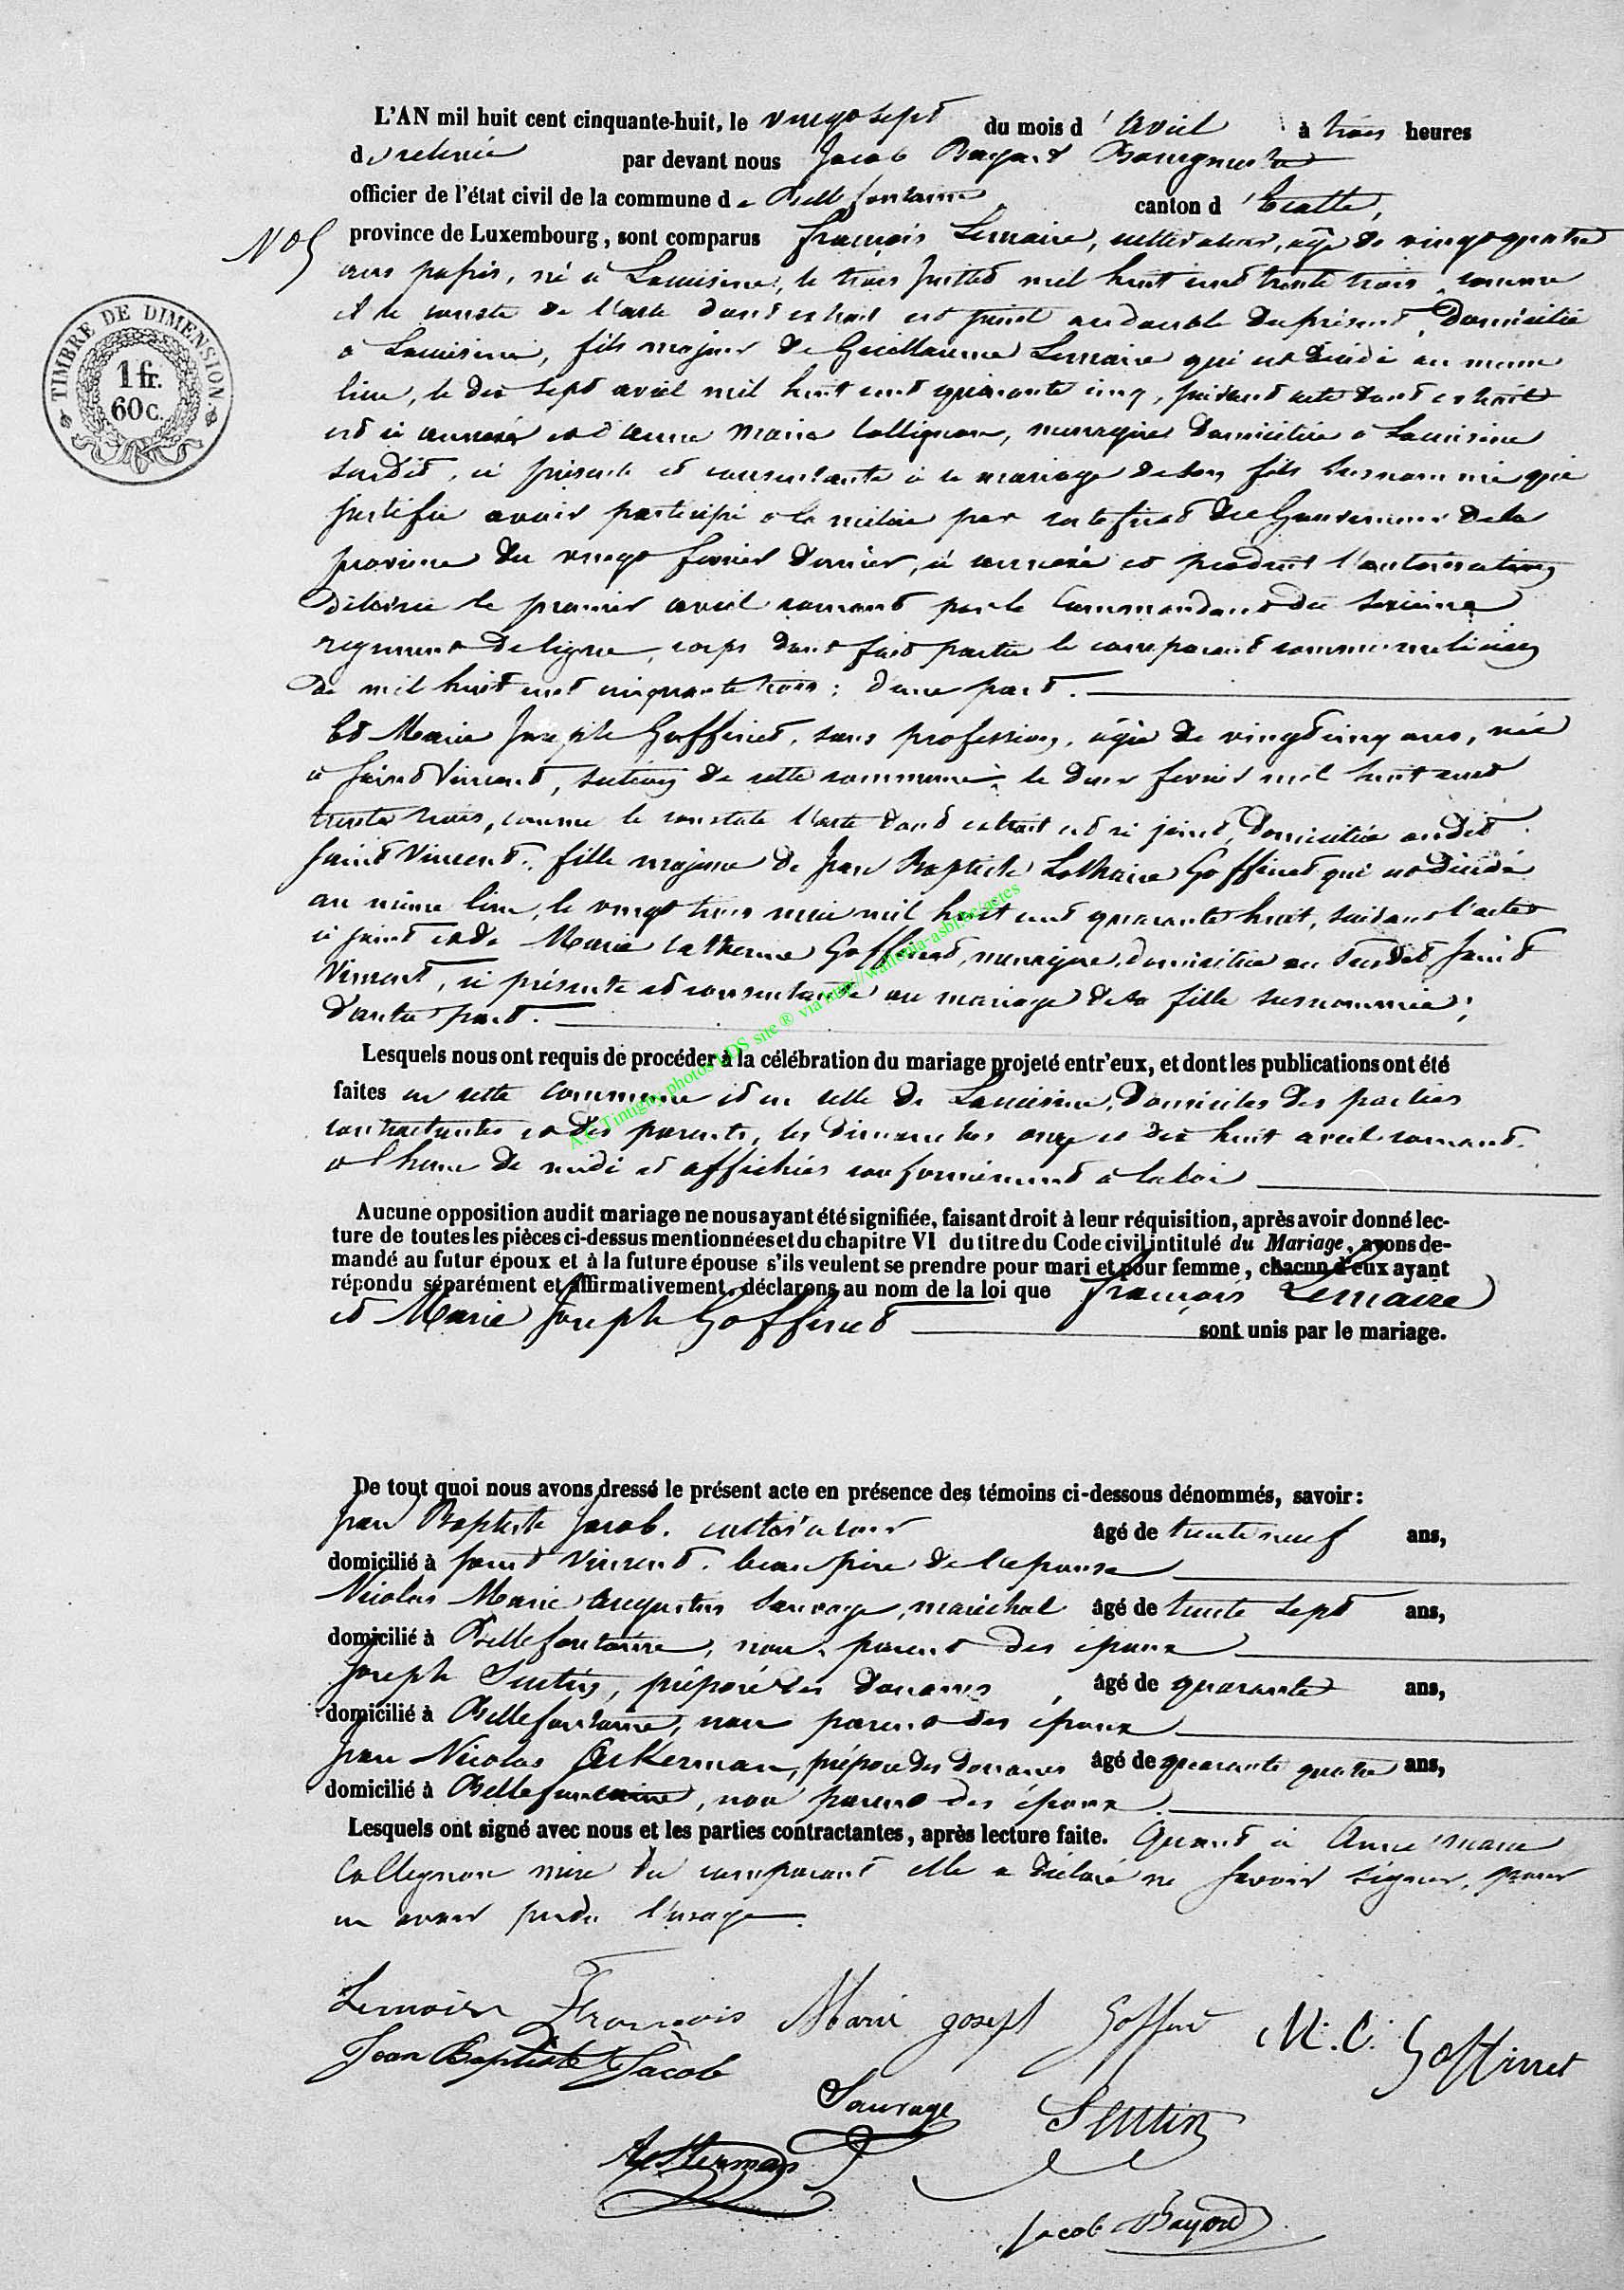 L'AN mil huit cent cinquante-huit, le vingt sept du mois d'Avril à trois heures
de relevée par devant nous Jacob Bayard Bourgmestre
officier de l'état civil de la commune de Bellefontaine canton d'Etalle,
N° 5
province de Luxembourg, sont comparus François Lemaire, cultivateur, âgé de vingt quatre
ans passés, né à Lacuisine, le trois Juillet mil huit cent trente trois, comme
il le conste de l'acte dont extrait est joint au double du présent, domicilié
à Lacuisine, fils majeur de Guillaume Lemaire qui est décédé au même
lieu, le dix sept avril mil huit cent quarante cinq, suivant acte dont extrait
est ci annexé et d'Anne Marie Collignon, ménagère domiciliée à Lacuisine
susdit, ci présente et consentante à ce mariage de son fils susnommé qui
justifie avoir participé à la milice par certificat du Gouverneur de la
province du vingt février dernier, ci annexé et produit l'autorisation
délivrée le premier avril courant par le Commandant du
régiment de ligne, corps dont fait partie le comparant comme milicien
de mil huit cent cinquante trois ; d'une part.
Et Marie Joseph Goffinet, sans profession, âgée de vingt cinq ans, née
à Saint Vincent, section de cette commune, le deux février mil huit cent
trente trois, comme le constate l'acte dont extrait est ci joint, domiciliée audit
Saint Vincent, fille majeure de Jean Baptiste Lothaire Goffinet qui est décédé
au même lieu, le vingt trois mai mil huit cent quarante huit, suivant l'acte
ci joint et de Marie Catherine Goffinet, ménagère, domiciliée au susdit Saint
Vincent, ci présente et consentante au mariage de sa fille susnommée ;
d'autre part.
Lesquels nous ont requis de procéder à la célébration du mariage projeté entr'eux, et dont les publications ont été
faites en cette commune et en celle de Lacuisine, domiciles des parties
contractantes et des parents, les dimanches onze et dix huit avril courant.
à l'heure de midi et affichées conformément à la loi
Aucune opposition audit mariage ne nous ayant été signifiée, faisant droit à leur réquisition, après avoir donné lec-
ture de toutes les pièces ci-dessus mentionnées et du chapitre VI du titre du Code civil intitulé du Mariage, avons de-
mandé au futur époux et à la future épouse s'ils veulent se prendre pour mari et pour femme, chacun d'eux ayant
répondu séparément et affirmativement, déclarons au nom de la loi que François Lemaire
et Marie Joseph Goffinet sont unis par le mariage.
De tout quoi nous avons dressé le présent acte en présence des témoins ci-dessous dénommés, savoir :
Jean Baptiste Jacob, cultivateur âgé de trente neuf ans,
domicilié à Saint Vincent, beau père de l'épouse
Nicolas Marie Augustin Sauvage, maréchal âgé de trente sept ans,
domicilié à Bellefontaine, non parent des époux
Joseph Seutin, préposé des douanes, âgé de quarante ans,
domicilié à Bellefontaine, non parent des époux
Jean Nicolas Ackerman, préposé des douanes âgé de quarante quatre ans,
domicilié à Bellefontaine, non parent des époux.
Lesquels ont signé avec nous et les parties contractantes, après lecture faite. Quant à Anne Marie
Collignon mère du comparant elle a déclaré ne savoir signer, pour
en avoir perdu l'usage.
Lemaire François Marie Joseph Goffinet M. C. Goffinet
Jean Baptiste Jacob
Sauvage Seutin
Ackerman
Jacob Bayard
TIMBRE DE DIMENSION
1 fr.
60 c.
A.C. Tintigny photos LDS site ® via http://wallonia-asbl.be/actes